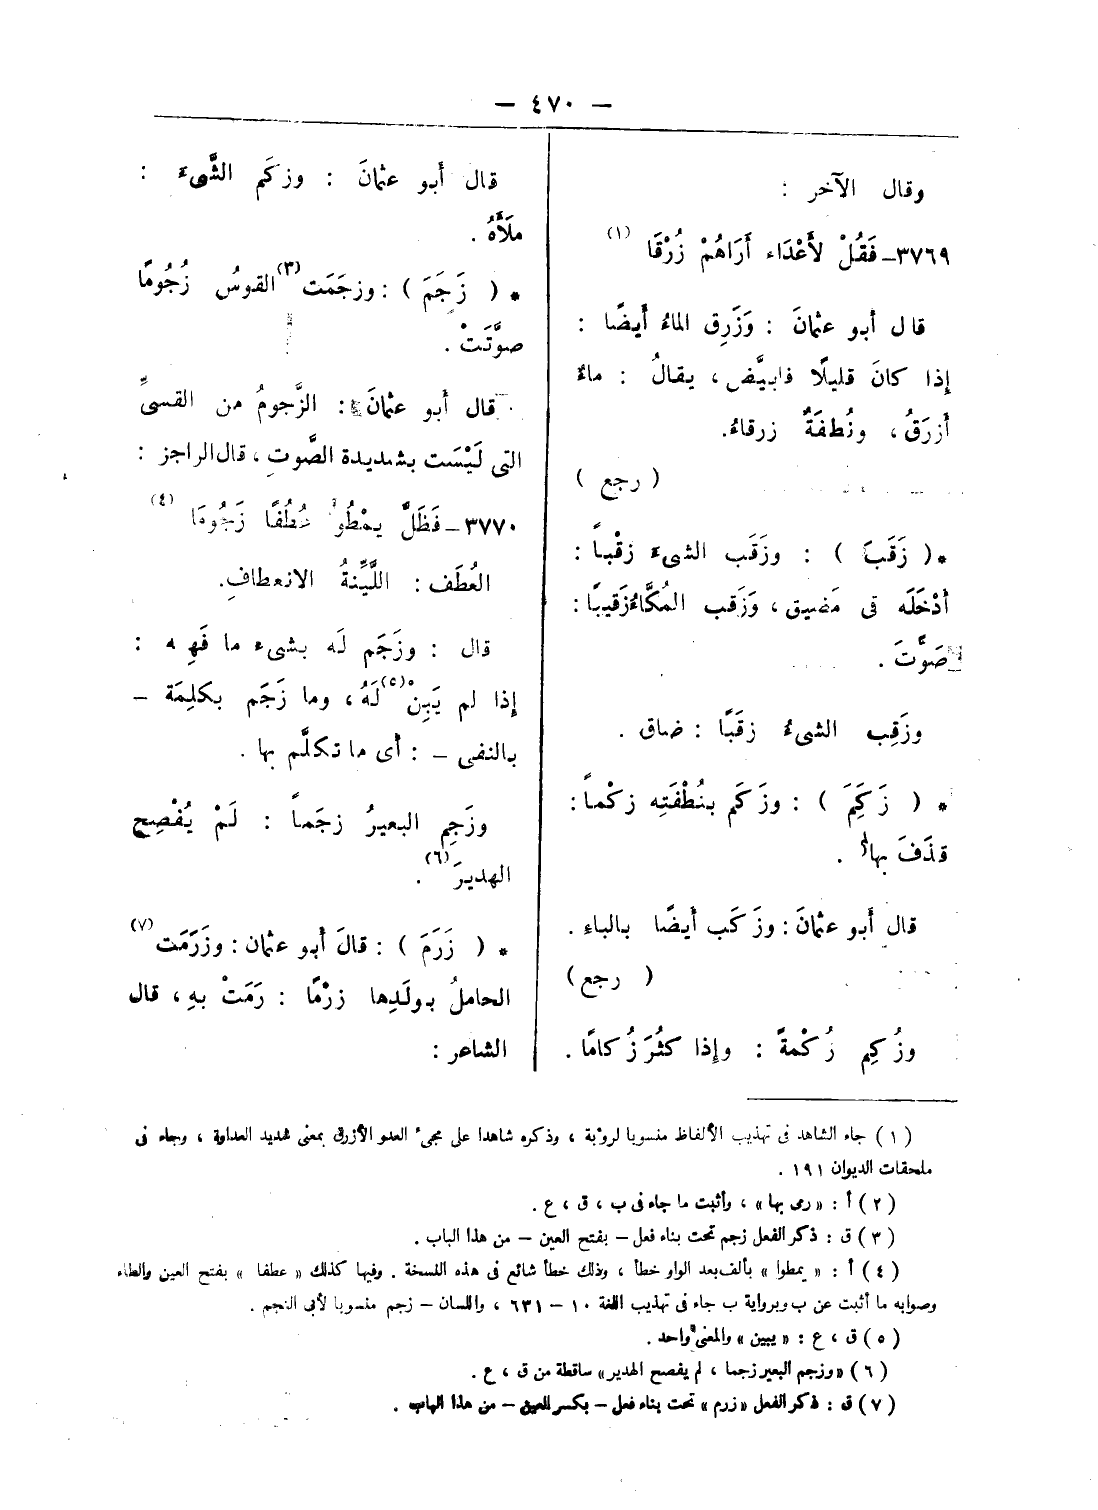 — ٤٧٠ —
وقال الآخر :
٣٧٦٩ــ فَقُلْ لأَعْدَاء أَرَاهُمْ زُرْقَا (١)
قال أبو عثمانَ : وَزَرِق الماءُ أيضًا :
إذا كانَ قليلًا فابيَّض ، يقالُ : ماءٌ
أزرَقُ ، ونُطفَةٌ زرقاءُ.
( رجع )
* ( زَقَبَ ) : وزَقَب الشىءَ زقْباً :
أدْخَلَه فى مَضيق ، وَزَقب المُكَّاءُ زَقيبًا :
صَوَّتَ .
وزَقِب الشىءُ زقَبًا : ضاق .
* ( زَكَمَ ) : وزكَم بنُطْفَتِه زكْماً :
قذَفَ بها .
قال أبو عثمانَ : وزَكَب أيضًا بالباء .
( رجع )
وزُكِم زُكْمةً : وإذا كثُرَ زُكامًا .
قال أبو عثمانَ : وزكَم الشَّىءَ :
ملَأَهُ .
* ( زَجَمَ ) : وزجَمَت (٣) القوسُ زُجُومًا
صوَّتَتْ .
قال أبو عثمانَ : الزَّجومُ من القسىِّ
التى لَيْسَت بشديدة الصَّوتِ ، قال الراجز :
٣٧٧٠ــ فَظَلَّ يمْطُو عُطُفًا زَجُومَا (٤)
العُطَف : اللَّيِّنةُ الانعطافِ.
قال : وزَجَم لَه بشىء ما فَهِمه :
إذا لم يَبِنْ (٥) لَهُ ، وما زَجَم بكلِمَة –
بالنفى – : أى ما تكلَّم بها .
وزَجِم البعيرُ زجَماً : لَمْ يُفْصِح
الهديرَ (٦) .
* ( زَرَمَ ) : قالَ أبو عثمان : وزَرَمَت (٧)
الحاملُ بولَدِها زرْمًا : رَمَتْ بهِ ، قال
الشاعر :
( ١ ) جاء الشاهد فى تهذيب الألفاظ منسوبا لرؤبة ، وذكره شاهدا على مجىء العدو الأزرق بمعنى شديد العداوة ، وجاء فى
ملحقات الديوان ١٩١ .
( ٢ ) أ : « رمى بها » ، وأثبت ما جاء فى ب ، ق ، ع .
( ٣ ) ق : ذكر الفعل زجم تحت بناء فعل – بفتح العين – من هذا الباب .
( ٤ ) أ : « يمطوا » بألف بعد الواو خطأ ، وذلك خطأ شائع فى هذه النسخة . وفيها كذلك « عطفا » بفتح العين والطاء
وصوابه ما أثبت عن ب وبرواية ب جاء فى تهذيب اللغة ١٠ – ٦٣١ ، واللسان – زجم منسوبا لأبى النجم .
( ٥ ) ق ، ع : « يبين » والمعنى واحد .
( ٦ ) « وزجم البعير زجما ، لم يفصح الهدير » ساقطة من ق ، ع .
( ٧ ) ق : ذكر الفعل « زرم » تحت بناء فعل – بكسر العين – من هذا الباب .